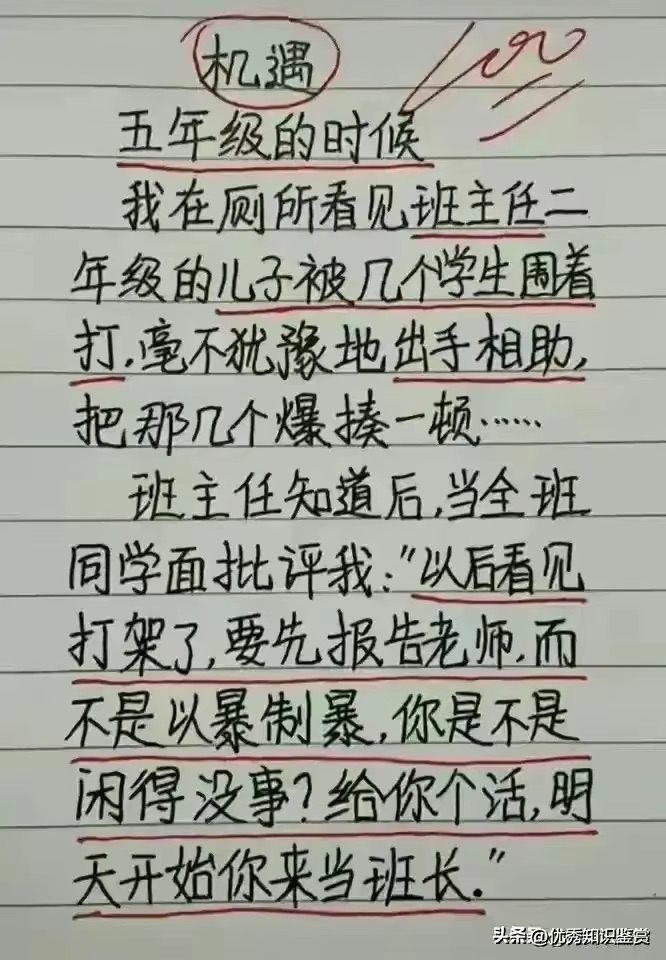 机遇
100
五年级的时候
我在厕所看见班主任二
年级的儿子被几个学生围着
打,毫不犹豫地出手相助,
把那几个爆揍一顿……
班主任知道后,当全班
同学面批评我:"以后看见
打架了,要先报告老师,而
不是以暴制暴,你是不是
闲得没事?给你个活,明
天开始你来当班长."
头条@优秀知识鉴赏